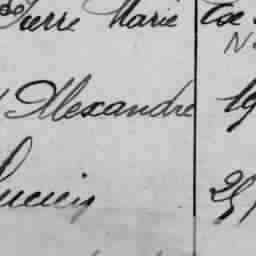 Pierre Marie
Alexandre 19
Lucien 25